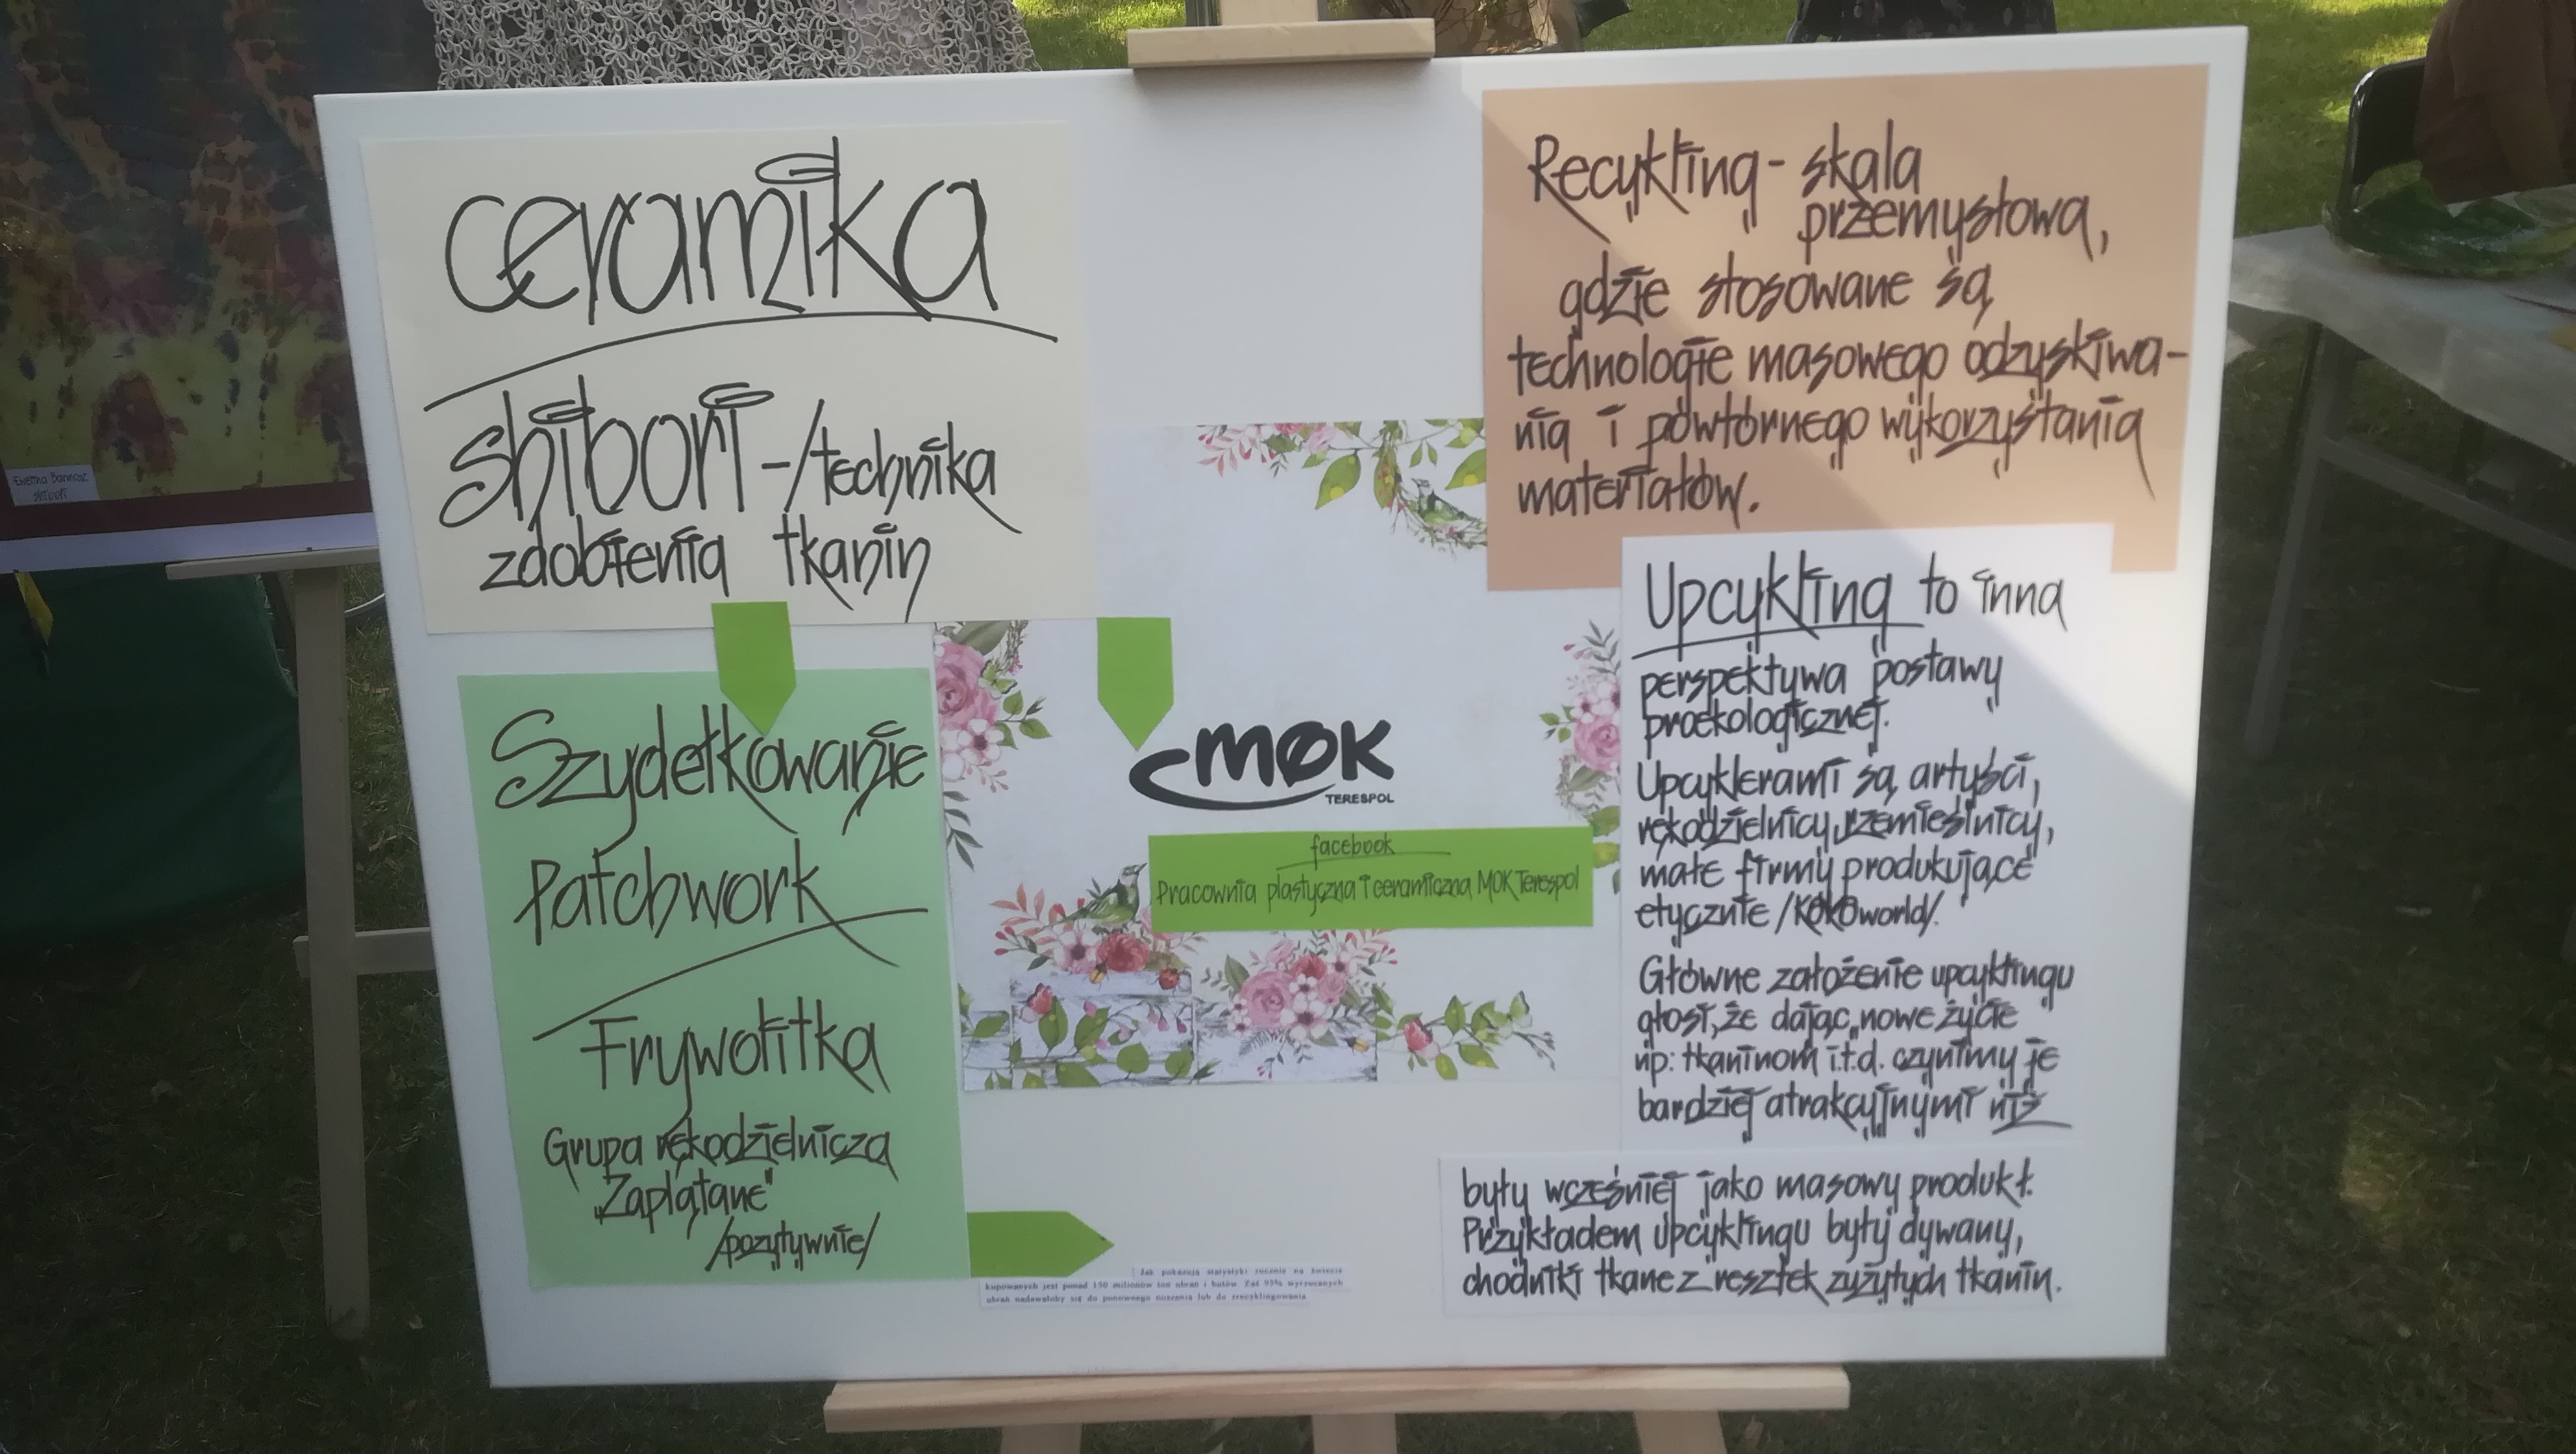 ceramika
shibori - /technika
zdobienia tkanin
Szydełkowanie
Patchwork
Frywolitka
Grupa rękodzielnicza
„Zaplątane"
/pozytywnie/
MOK
TERESPOL
facebook
Pracownia plastyczna i ceramiczna MOK Terespol
Jak pokazują statystyki rocznie na świecie
kupowanych jest ponad 150 milionów ton ubrań i butów. Zaś 95% wyrzucanych
ubrań nadawałoby się do ponownego noszenia lub do zrecyklingowania
Recykling - skala
przemysłowa,
gdzie stosowane są
technologie masowego odzyskiwa-
nia i powtórnego wykorzystania
materiałów.
Upcykling to inna
perspektywa postawy
proekologicznej.
Upcyklerami są artyści,
rękodzielnicy, rzemieślnicy,
małe firmy produkujące
etycznie /KOKOworld/.
Główne założenie upcyklingu
głosi, że dając „nowe życie
np: tkaninom i.t.d. czynimy je
bardziej atrakcyjnymi niż
były wcześniej jako masowy produkt.
Przykładem upcyklingu były dywany,
chodniki tkane z resztek zużytych tkanin.
Ewelina
shibori